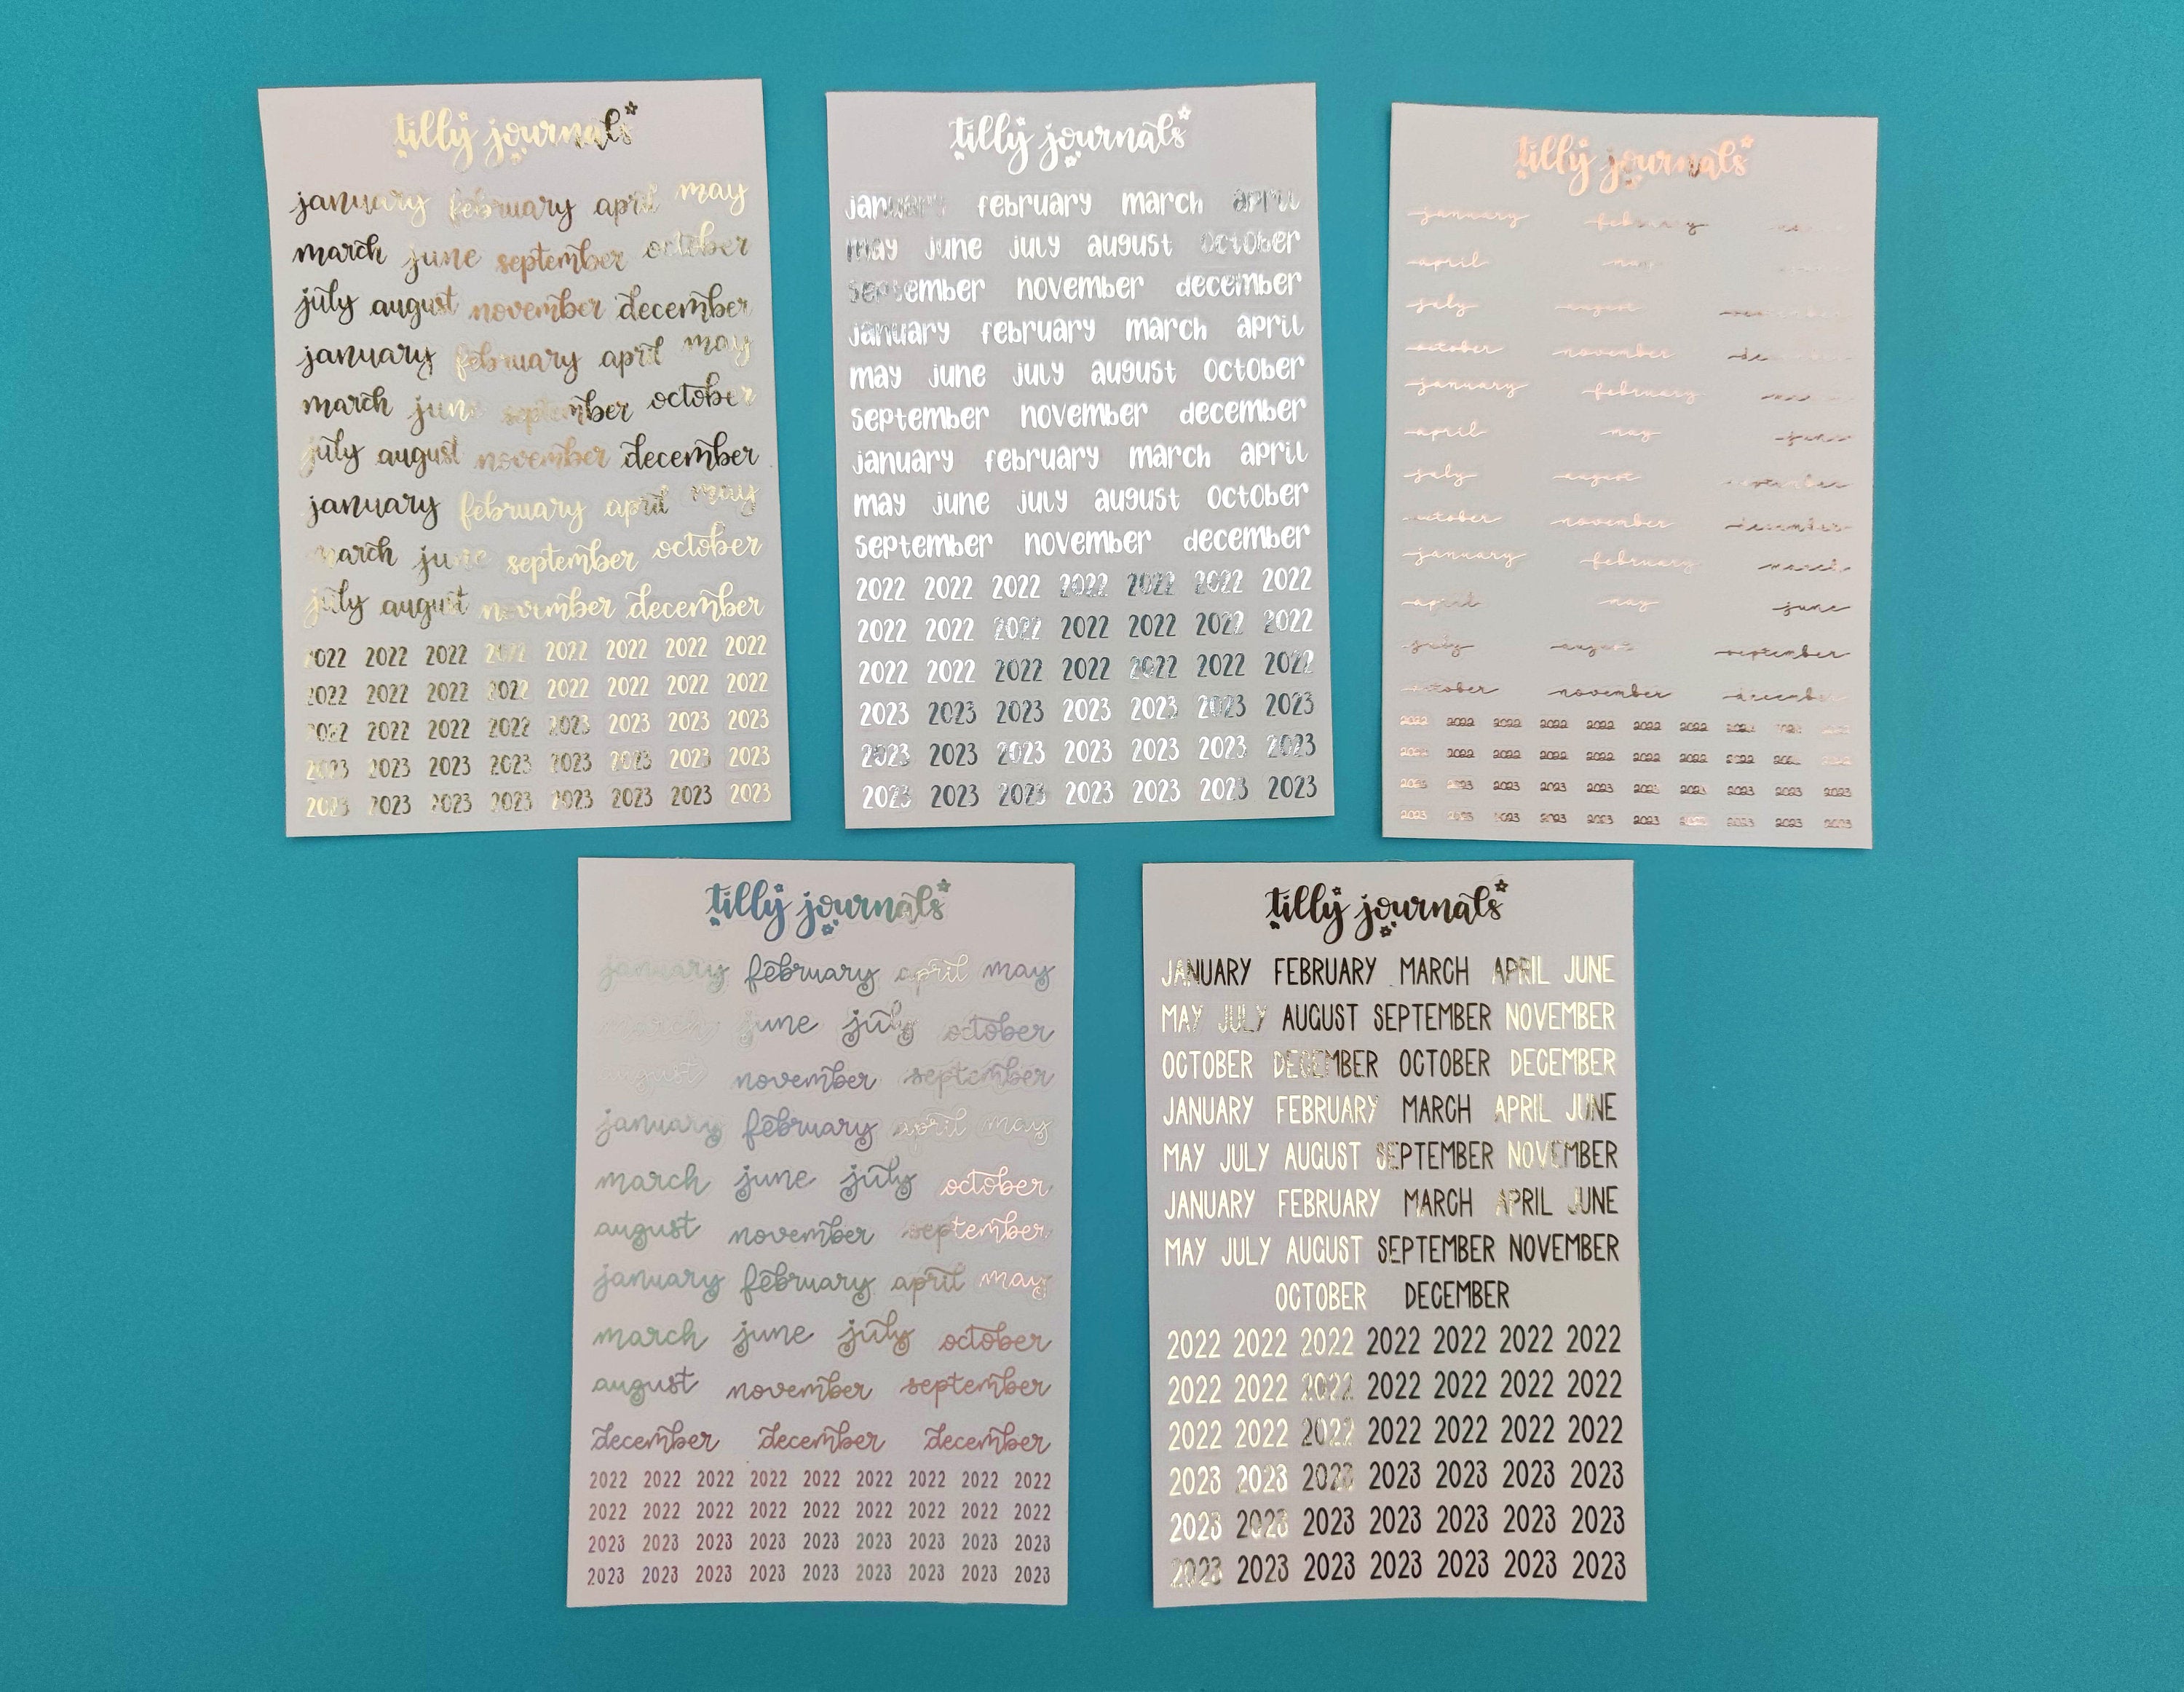 tilly journals
january february april may
march june september october
july august november december
january february april may
march june september october
july august november december
january february april may
march june september october
july august november december
2022 2022 2022 2022 2022 2022 2022 2022
2022 2022 2022 2022 2022 2022 2022 2022
2022 2022 2022 2022 2023 2023 2023 2023
2023 2023 2023 2023 2023 2023 2023 2023
2023 2023 2023 2023 2023 2023 2023 2023
tilly journals
january february march april
may june july august october
september november december
january february march april
may june july august october
september november december
january february march april
may june july august october
september november december
2022 2022 2022 2022 2022 2022 2022
2022 2022 2022 2022 2022 2022 2022
2022 2022 2022 2022 2022 2022 2022
2023 2023 2023 2023 2023 2023 2023
2023 2023 2023 2023 2023 2023 2023
2023 2023 2023 2023 2023 2023 2023
tilly journals
january february
april may
july august
october november december
january february
april may june
july august september
october november december
january february march
april may june
july august september
october november december
2022 2022 2022 2022 2022 2022 2022 2022 2022
2022 2022 2022 2022 2022 2022 2022 2022 2022
2023 2023 2023 2023 2023 2023 2023 2023 2023
2023 2023 2023 2023 2023 2023 2023 2023 2023 2023
tilly journals
january february april may
march june july october
november september
january february april may
march june july october
august november september
january february april may
march june july october
august november september
december december december
2022 2022 2022 2022 2022 2022 2022 2022 2022
2022 2022 2022 2022 2022 2022 2022 2022 2022
2023 2023 2023 2023 2023 2023 2023 2023 2023
2023 2023 2023 2023 2023 2023 2023 2023 2023
tilly journals
JANUARY FEBRUARY MARCH APRIL JUNE
MAY JULY AUGUST SEPTEMBER NOVEMBER
OCTOBER DECEMBER OCTOBER DECEMBER
JANUARY FEBRUARY MARCH APRIL JUNE
MAY JULY AUGUST SEPTEMBER NOVEMBER
JANUARY FEBRUARY MARCH APRIL JUNE
MAY JULY AUGUST SEPTEMBER NOVEMBER
OCTOBER DECEMBER
2022 2022 2022 2022 2022 2022 2022
2022 2022 2022 2022 2022 2022 2022
2022 2022 2022 2022 2022 2022 2022
2023 2023 2023 2023 2023 2023 2023
2023 2023 2023 2023 2023 2023 2023
2023 2023 2023 2023 2023 2023 2023